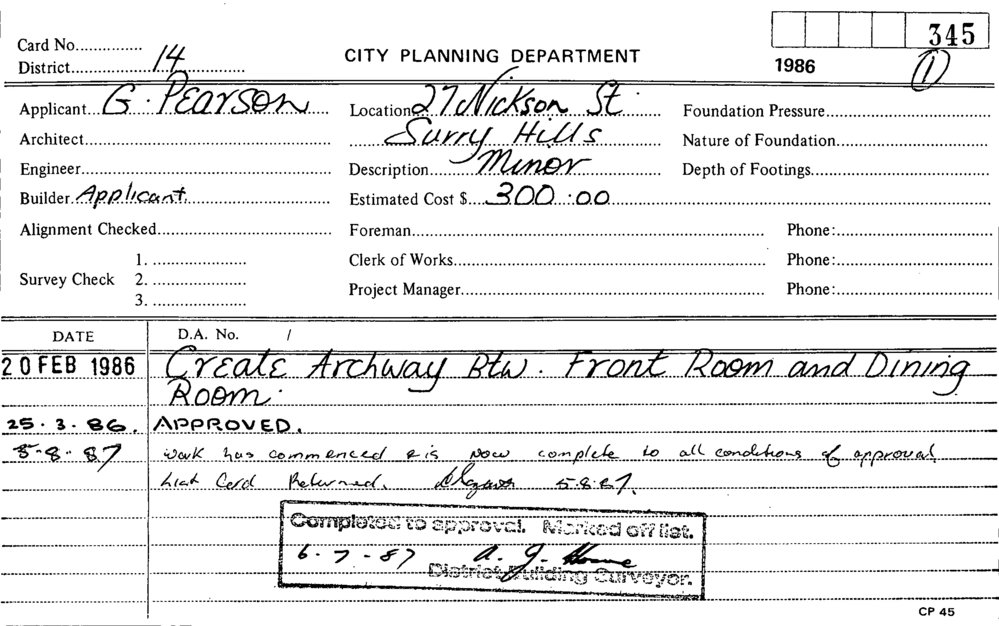 345
Card No...............
CITY PLANNING DEPARTMENT
1986
1
District 14
Applicant G. Pearson
Location 27 Nickson St
Foundation Pressure
Architect
Surry Hills
Nature of Foundation
Engineer
Description Minor
Depth of Footings
Builder Applicant
Estimated Cost $ 300.00
Alignment Checked
Foreman
Phone:
Survey Check
1.
2.
3.
Clerk of Works
Phone:
Project Manager
Phone:
DATE
D.A. No. /
20 FEB 1986
Create Archway Btw. Front Room and Dining
Room.
25.3.86. APPROVED.
5-8-87 work has commenced & is now complete to all conditions of approval
List Card Returned. 5.8.87.
Completed to approval. Marked off list.
6-7-87 A. J.
District Building Surveyor.
CP 45